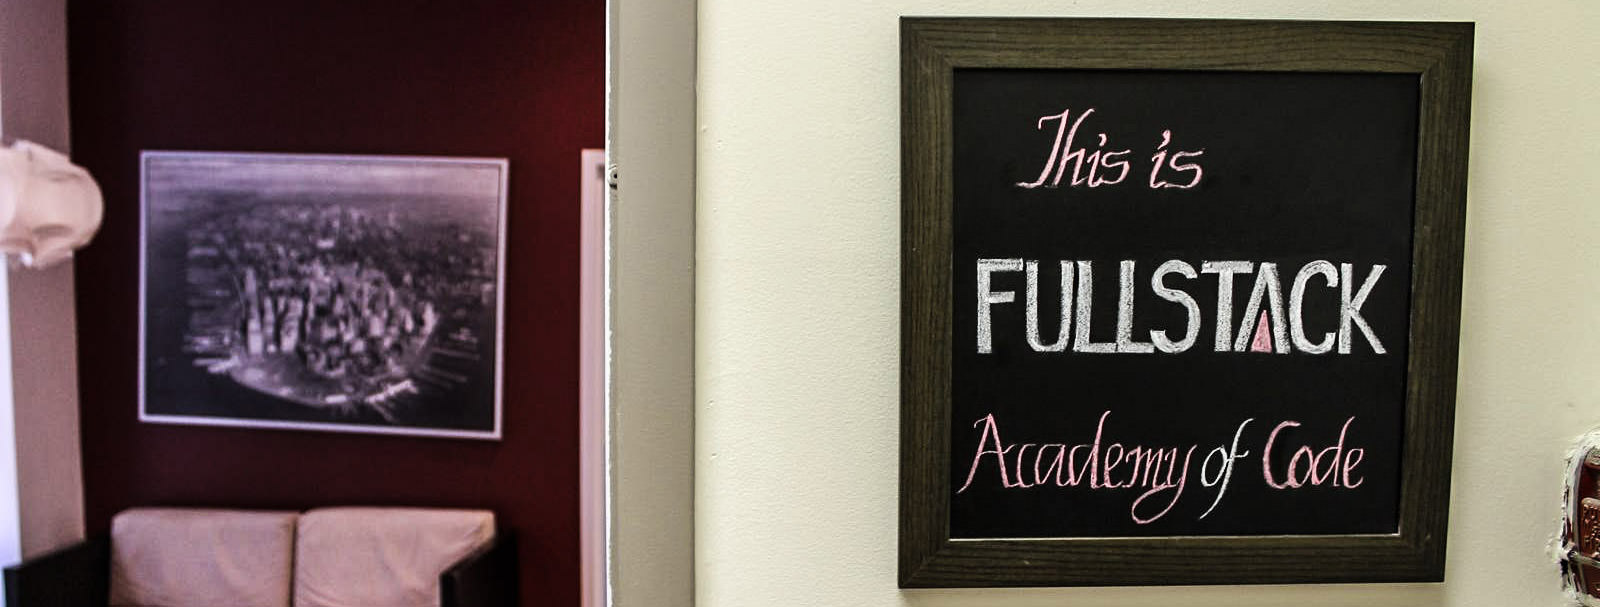 This is
FULLSTACK
Academy of Code